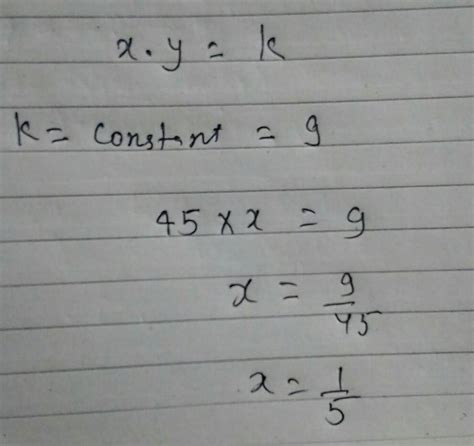 x . y = k
k = constant = 9
45 × x = 9
x = 9/45
x = 1/5